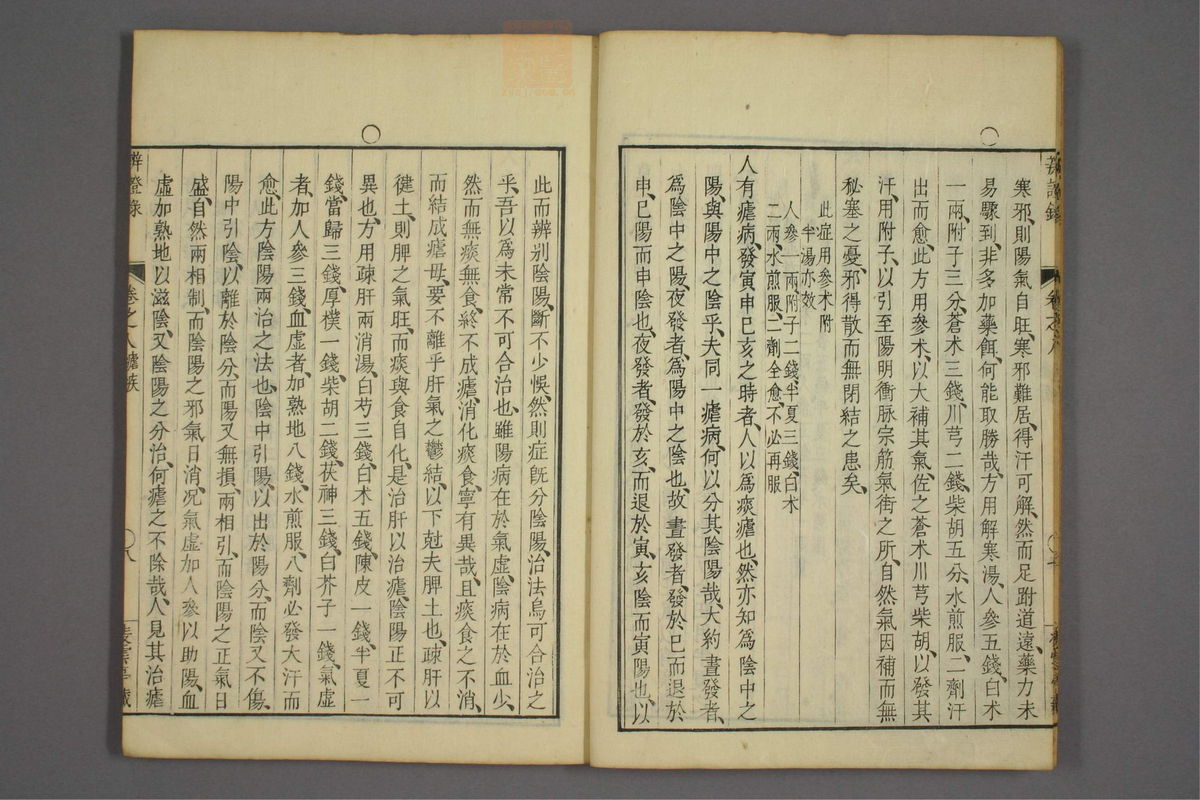 寒邪、則陽氣自旺、寒邪難居、得汗可解、然而足跗道遠、藥力未
易驟到、非多加藥餌、何能取勝哉、方用解寒湯、人參五錢、白朮
一兩、附子三分、蒼朮三錢、川芎二錢、柴胡五分、水煎服、二劑汗
出而愈、此方用參朮、以大補其氣、佐之蒼朮川芎柴胡、以發其
汗、用附子、以引至陽明衝脉宗筋氣街之所、自然氣因補而無
秘塞之憂、邪得散而無閉結之患矣、
此症用參朮附
半湯亦效
人參一兩附子二錢、半夏三錢、白朮
二兩、水煎服、二劑全愈、不必再服
人有瘧病、發寅申巳亥之時者、人以爲痰瘧也、然亦知爲陰中之
陽、與陽中之陰乎、夫同一瘧病、何以分其陰陽哉、大約晝發者、
爲陰中之陽、夜發者、爲陽中之陰也、故晝發者、發於巳而退於
申、巳陽而申陰也、夜發者、發於亥、而退於寅、亥陰而寅陽也、以
此而辨别陰陽、斷不少悞、然則症旣分陰陽、治法烏可合治之
乎、吾以爲未常不可合治也、雖陽病在於氣虛、陰病在於血少、
然而無痰無食、終不成瘧、消化痰食、寧有異哉、且痰食之不消、
而結成瘧母、要不離乎肝氣之鬱結、以下尅夫脾土也、疎肝以
徤土、則脾之氣旺、而痰與食自化、是治肝以治瘧、陰陽正不可
異也、方用疎肝兩消湯、白芍三錢、白朮五錢、陳皮一錢、半夏一
錢、當歸三錢、厚樸一錢、柴胡二錢、茯神三錢、白芥子一錢、氣虛
者、加人參三錢、血虛者、加熟地八錢、水煎服、八劑必發大汗而
愈、此方陰陽兩治之法也、陰中引陽、以出於陽分、而陰又不傷、
陽中引陰、以離於陰分、而陽又無損、兩相引、而陰陽之正氣日
盛、自然兩相制、而陰陽之邪氣日消、况氣虛加人參以助陽、血
虛加熟地以滋陰、又陰陽之分治、何瘧之不除哉、人見其治瘧
辨證錄
卷之八瘧疾
八